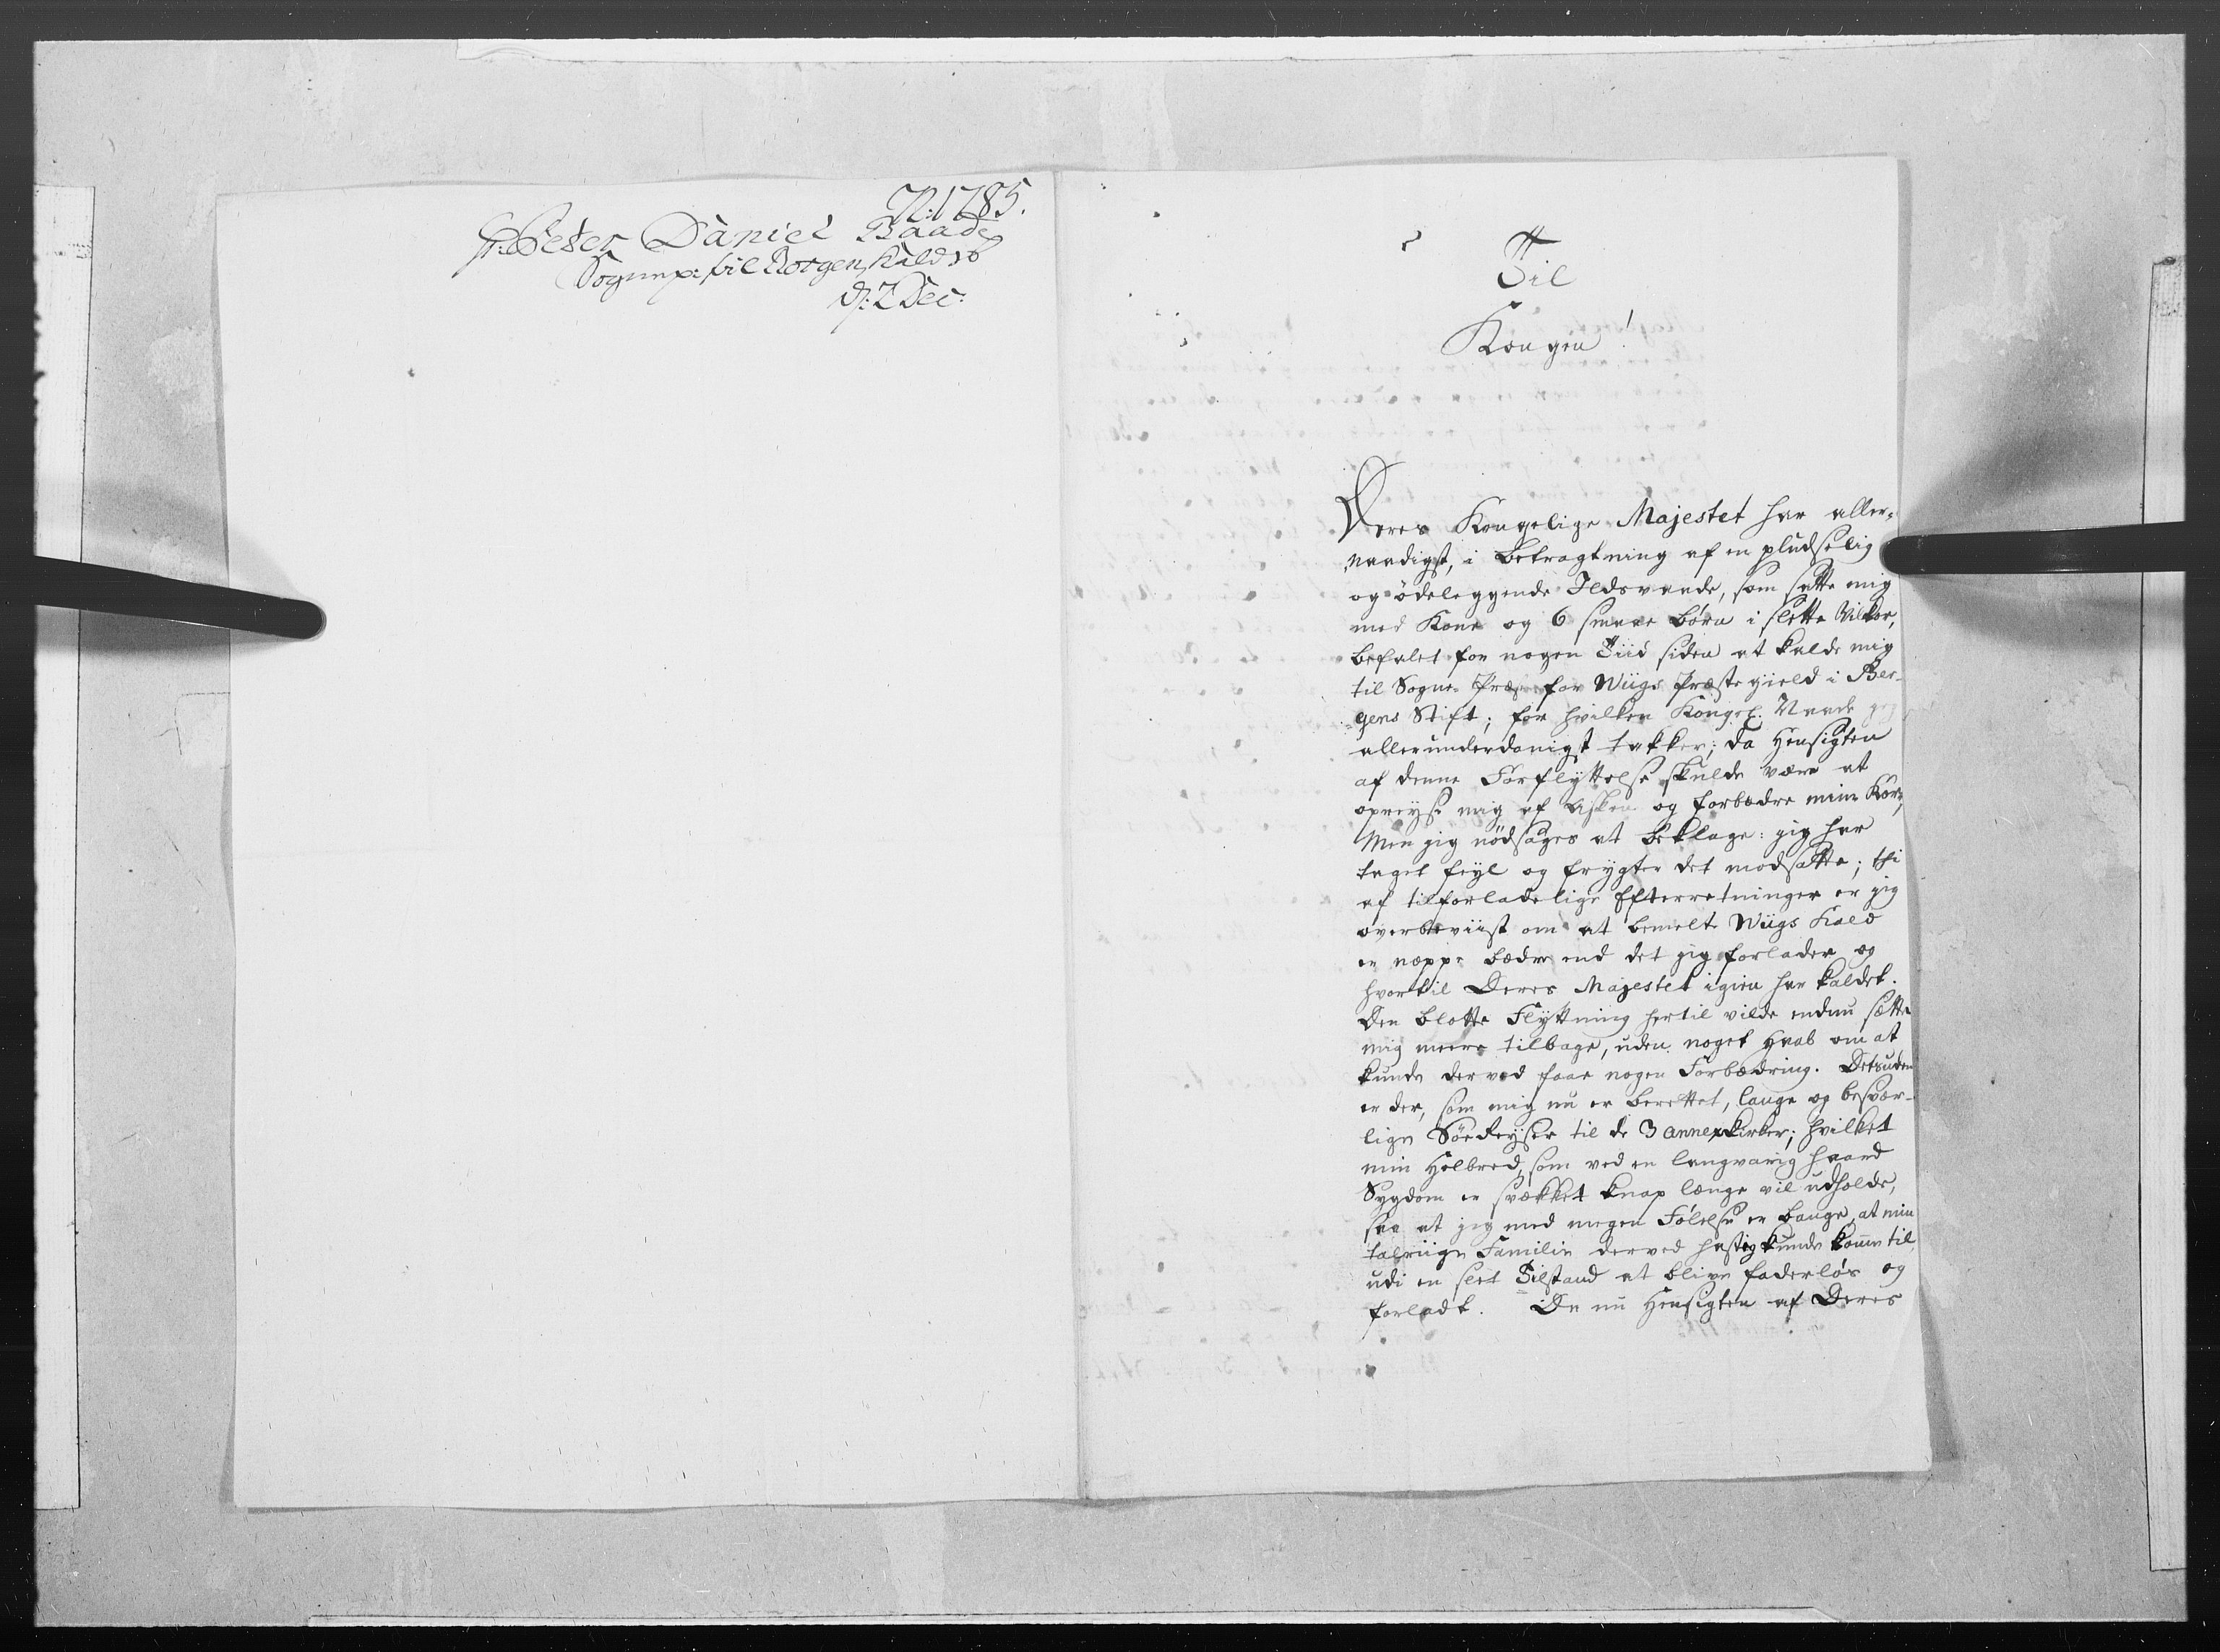 N: 1785.
Hr: Peter Daniel Baade
Sognep: til Borgens Kald
d: 2 Dec:
Til
Kongen!
Deres Kongelige Majestet har aller-
naadigst, i Betragtning af en pludselig
og ödeleggende Ildsvaade, som satte mig
med Kone og 6 smaae Börn i slette Vilkor,
befalet for nogen Tiid siden at kalde mig
til Sogne Præst for Wiigs Præstegield i Ber-
gens Stift; for hvilken Kongel. Naade jeg
allerunderdanigst takker; da Hensigten
af denne Forflyttelse skulde være at
opreyse mig af Asken og forbedre mine Kor,
Men jeg nödsages at beklage: jeg har
taget feyl og frygter det modsatte; thi
af tilforladelige Efterretninger er jeg
overbeviist om at bemelte Wiigs Kald
er neppe bedre end det jeg forlader og
hvortil Deres Majestet igien har kaldet.
Den blotte Flyttning hertil vilde endnu sætte
mig meere tilbage, uden noget Haab om at
kunde derved faae nogen Forbedring. Desuden
er der, som mig nu er berettet, lange og besvær-
lige Söe Reyser til de 3 annexkirker; hvilket
min Helbred, som ved en langvarig haard
Sygdom er svækket knap længe vil udholde,
saa at jeg med megen Fölelse er bange, at min
talriige Familie derved hastig kunde komme til
udi en slet Tilstand at blive faderlös og
forladt. Da nu Hensigten af Deres